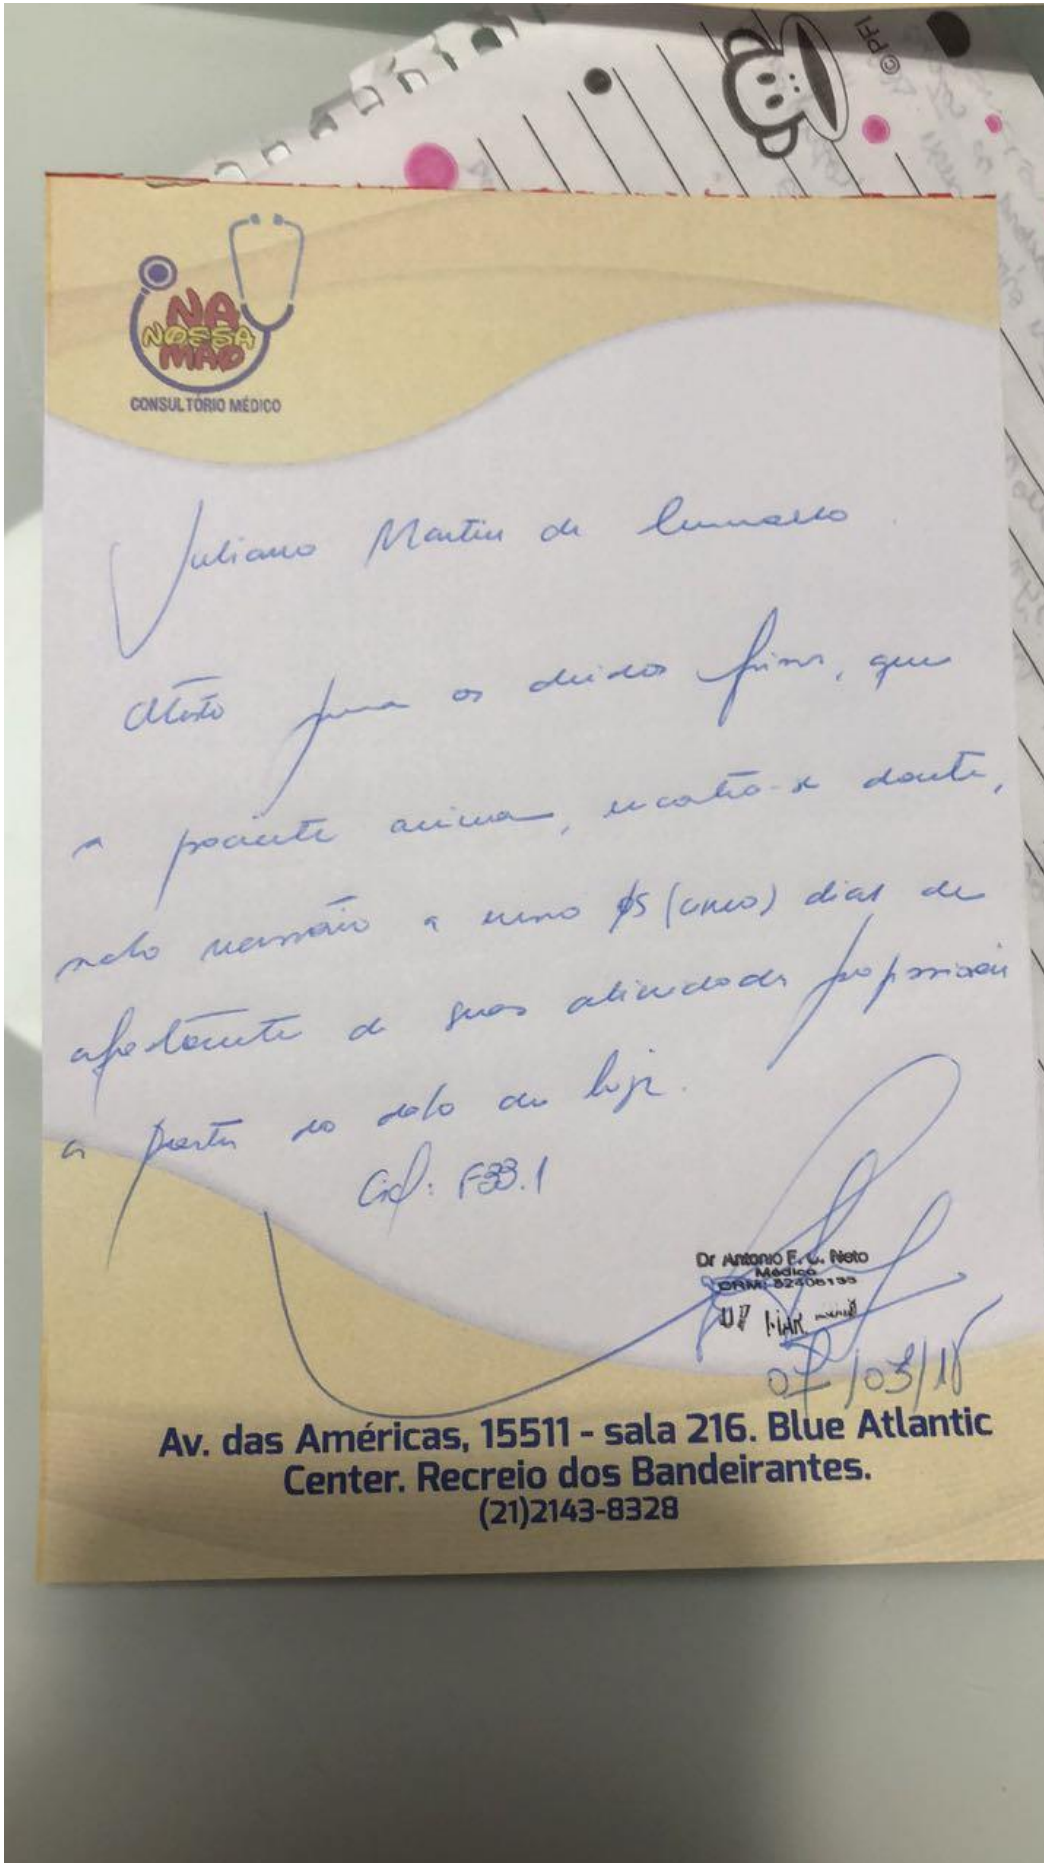 ©PFI
NA
NOSSA
MÃO
CONSULTÓRIO MÉDICO
Juliano Martins de
Atesto para os devidos fins, que
a paciente acima, encontra-se doente,
sendo necessário a 05 (cinco) dias de
afastamento de suas atividades profissionais
a partir da data de hoje.
Cid: F33.1
Dr Antonio F. C. Neto
Médico
07 MAR
07/03/18
Av. das Américas, 15511 - sala 216. Blue Atlantic
Center. Recreio dos Bandeirantes.
(21)2143-8328